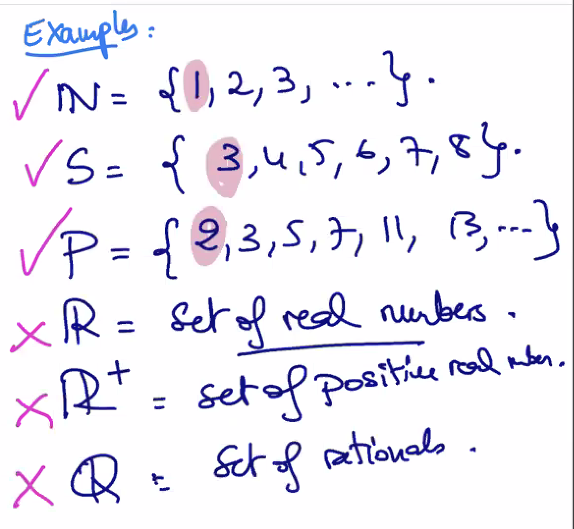 Examples:
✓ ℕ = {1, 2, 3, ...}.
✓ S = {3, 4, 5, 6, 7, 8}.
✓ P = {2, 3, 5, 7, 11, 13, ...}
✗ ℝ = set of real numbers.
✗ ℝ⁺ = set of positive real number.
✗ ℚ = set of rationals.